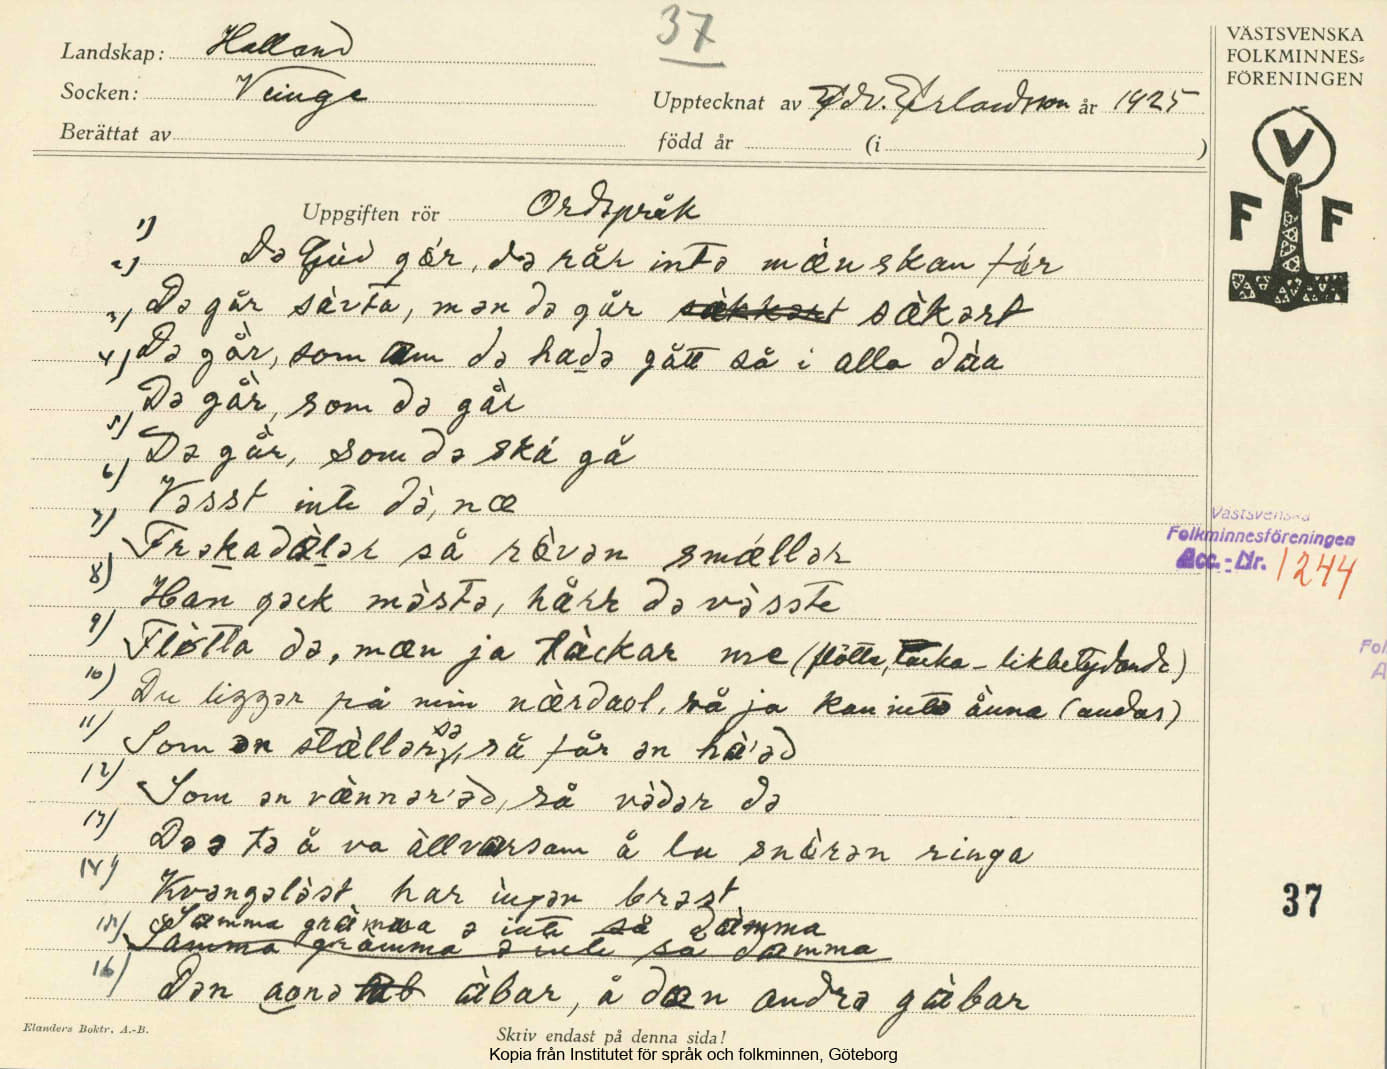 37
Landskap: Halland
Socken: Veinge
Upptecknat av Edv. Erlandsson år 1925
Berättat av
född år (i )
VÄSTSVENSKA
FOLKMINNES=
FÖRENINGEN
V
F F
Uppgiften rör Ordspråk
1) Də Gùd gǿr, də rår intə mǽnskan fǿr
2) Də går sàvta, mən də går sækkərt sækərt
3) Də går, som om də hadə gått så i alla dàa
4) Də går, som də går
5) Də går, som də ská gå
6) Vəsst inte də̀, næ
7) Frəkadælər så rø̀vən smællər
8) Han gəck mə̀stə, hårr də və̀sste
9) Flø̀tta də, mæn ja täckar me (flötta, täcka – likbetydande)
10) Du liggər på min nærdaol, så ja kan intə ånna (andas)
11) Som ən stællər də, så får ən hà'əd
12) Som ən vænnər'əd, så və̀dər də
13) Də ə tə å va àllvarsam å lu snòrən ringa
14) Kvəngəlàst har ìngən brəst
15) Samma gràmma ə inte så dàmma
Samma gràmma ə inte så dæmma
16) Dən aonə àbar, å dæn andrə gàbar
Västsvenska
Folkminnesföreningen
Acc.-Nr. 1244
Fol
A
37
Elanders Boktr. A.-B.
Skriv endast på denna sida!
Kopia från Institutet för språk och folkminnen, Göteborg